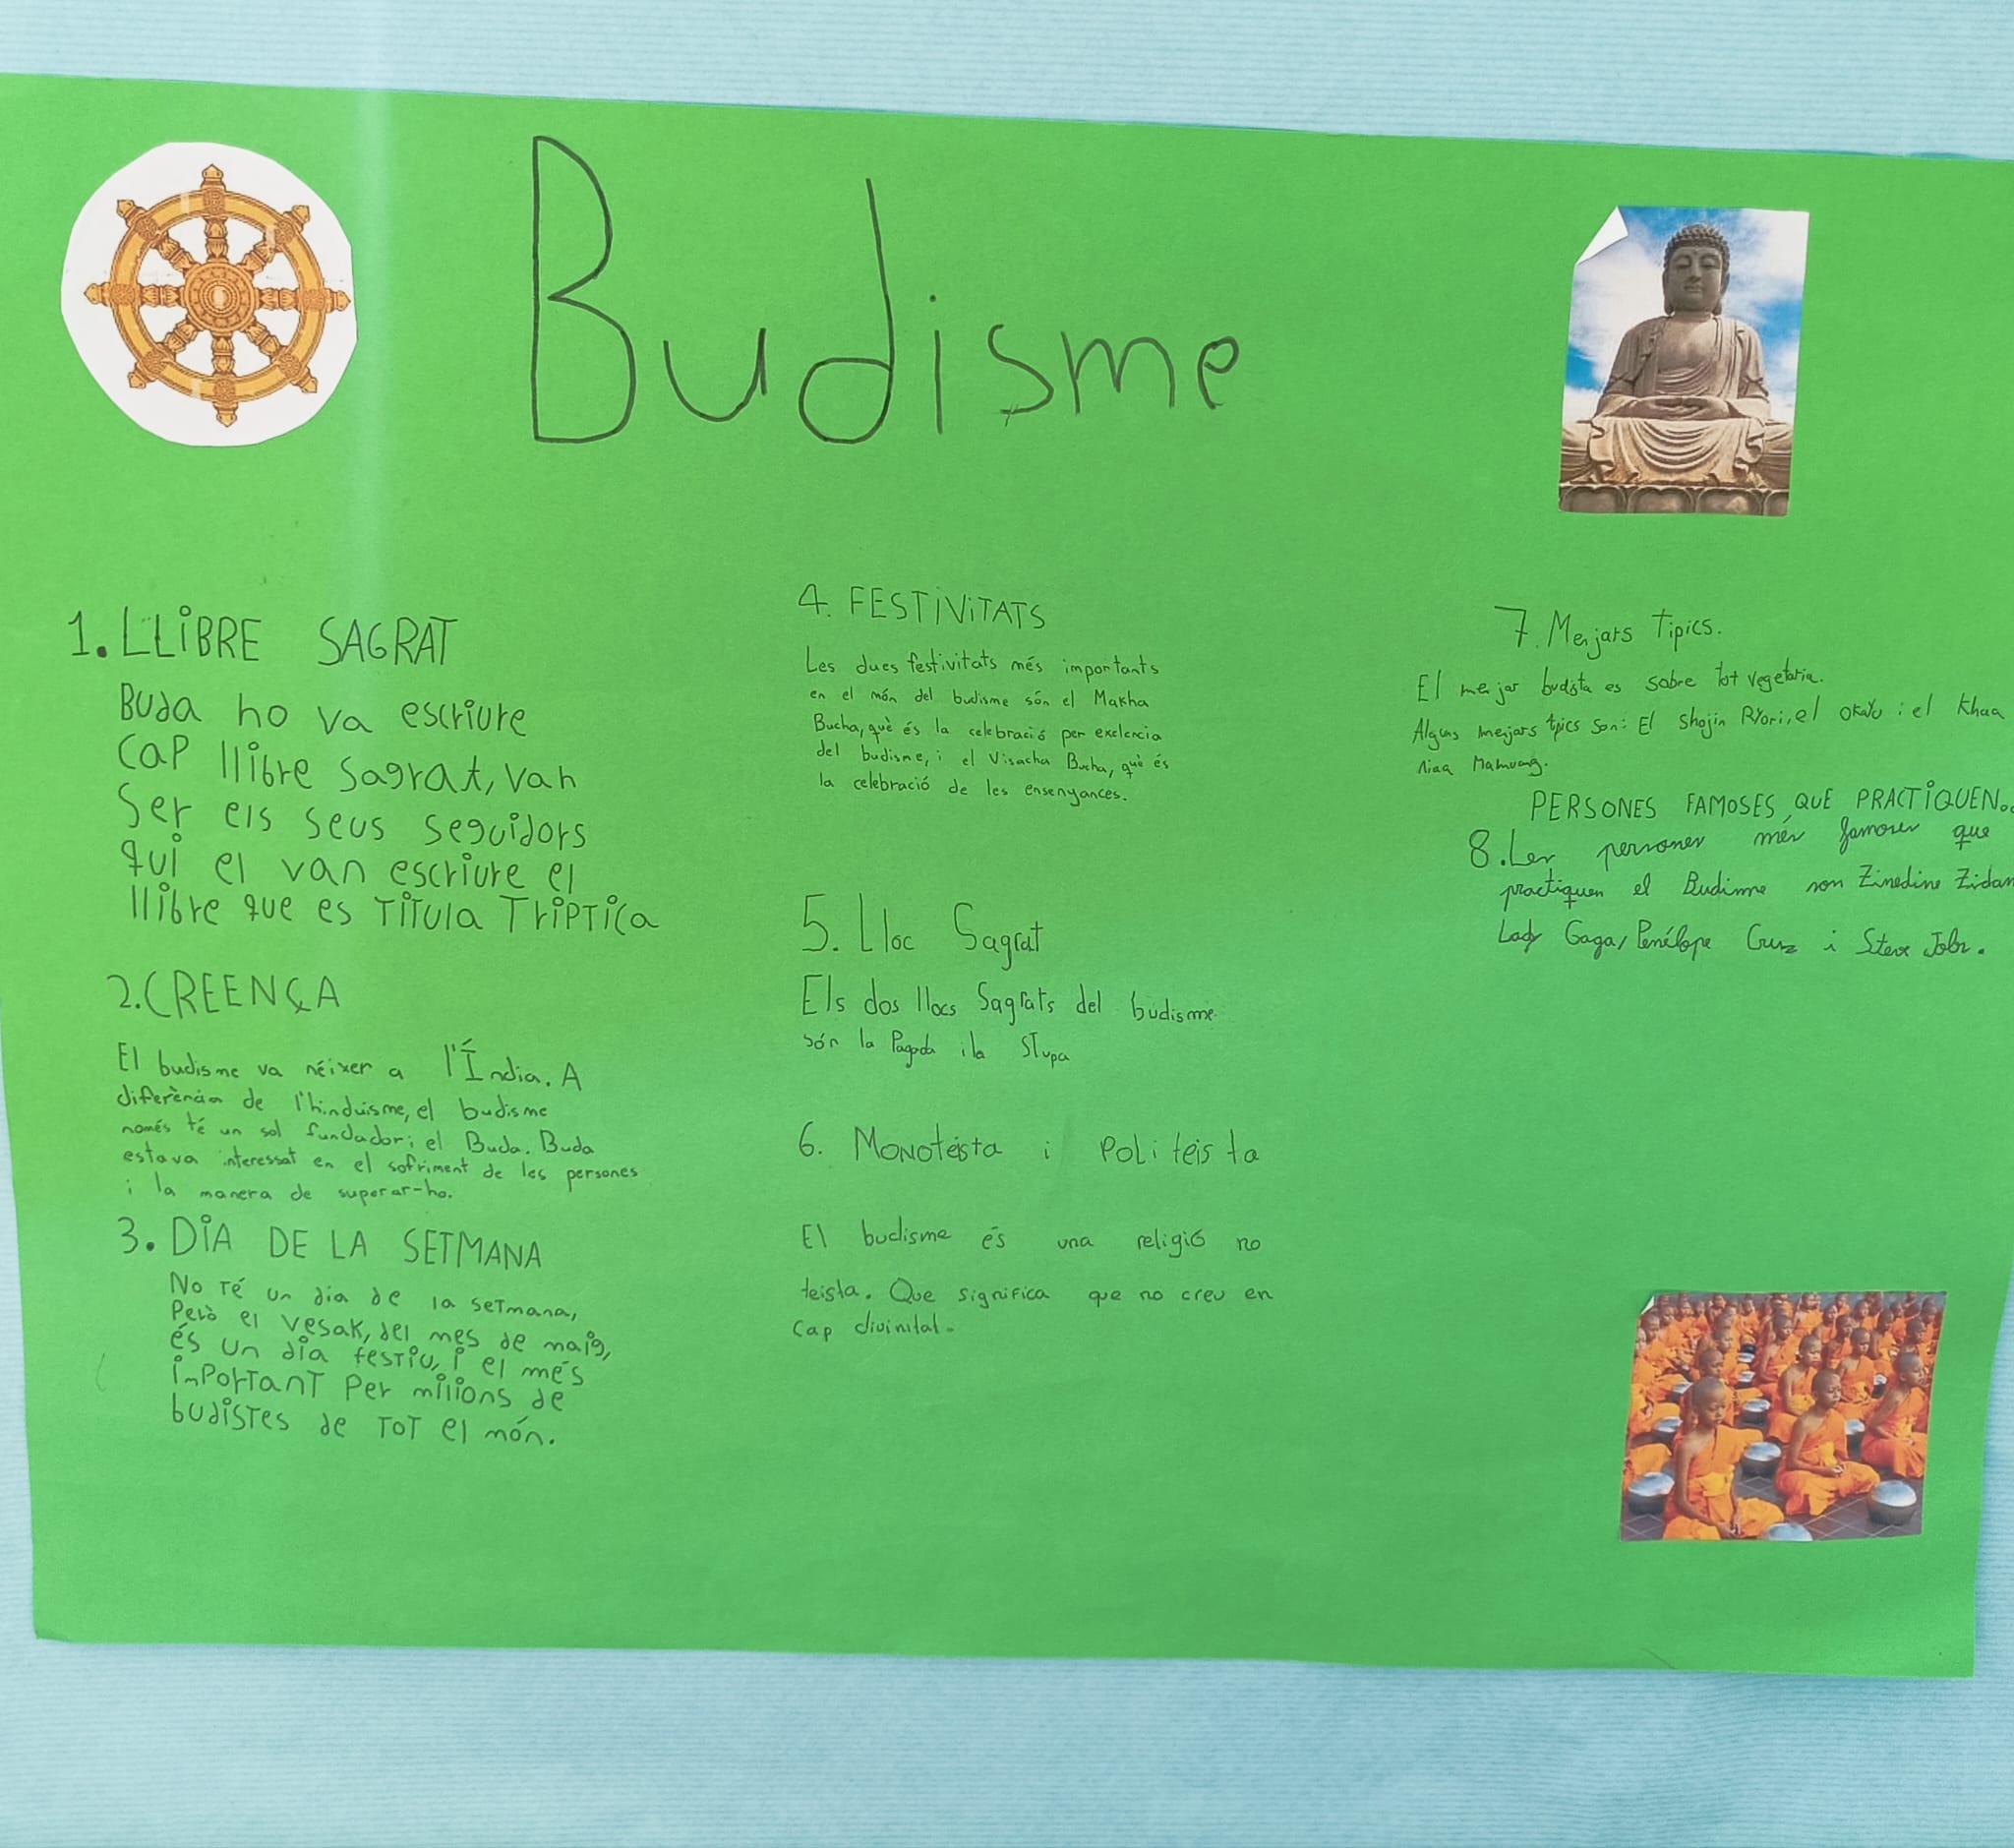 Budisme
1. LLIBRE SAGRAT
Buda ho va escriure
cap llibre sagrat, van
ser els seus seguidors
qui el van escriure el
llibre que es titula Triptica
2. CREENÇA
El budisme va néixer a l'Índia. A
diferència de l'hinduisme, el budisme
només té un sol fundador; el Buda. Buda
estava interessat en el sofriment de les persones
i la manera de superar-ho.
3. DIA DE LA SETMANA
No té un dia de la setmana,
Però el vesak, del mes de maig,
és un dia festiu, i el més
important per milions de
budistes de tot el món.
4. FESTIVITATS
Les dues festivitats més importants
en el món del budisme són el Makha
Bucha, què és la celebració per exelencia
del budisme, i el Visacha Bucha, què és
la celebració de les ensenyances.
5. Lloc Sagrat
Els dos llocs Sagrats del budisme
són la Pagoda i la STupa
6. Monoteista i Politeista
El budisme és una religió no
teista. Que significa que no creu en
cap divinitat.
7. Menjars Tipics.
El menjar budista es sobre tot vegetaria.
Alguns menjars tipics son: El Shojin RYori, el okaYu i el khaa
niaa Mamuang.
PERSONES FAMOSES QUE PRACTIQUEN..
8. Les persones més famoses que
practiquen el Budisme son Zinedine Zidan
Lady Gaga, Penélope Cruz i Steve Jobs.